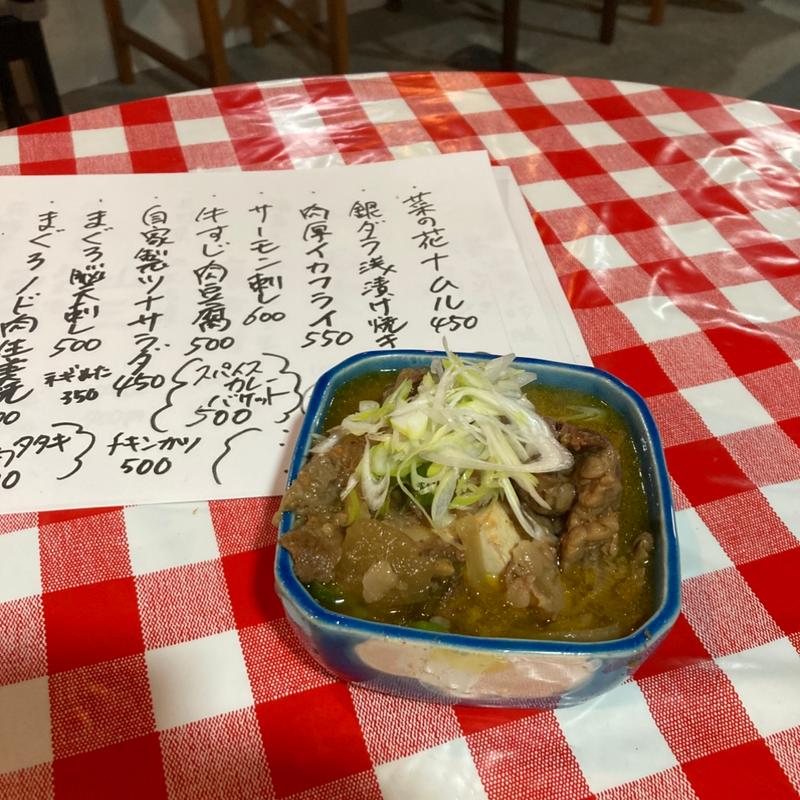 菜の花ナムル 450
銀ダラ浅漬け焼き
肉厚イカフライ 550
サーモン刺し 600
牛すじ肉豆腐 500
自家製ツナサラダ 450
まぐろ脳天刺し 500
まぐろノド肉生姜焼
スパイスカレーバゲット 500
ネギぬた 350
チキンカツ 500
タタキ